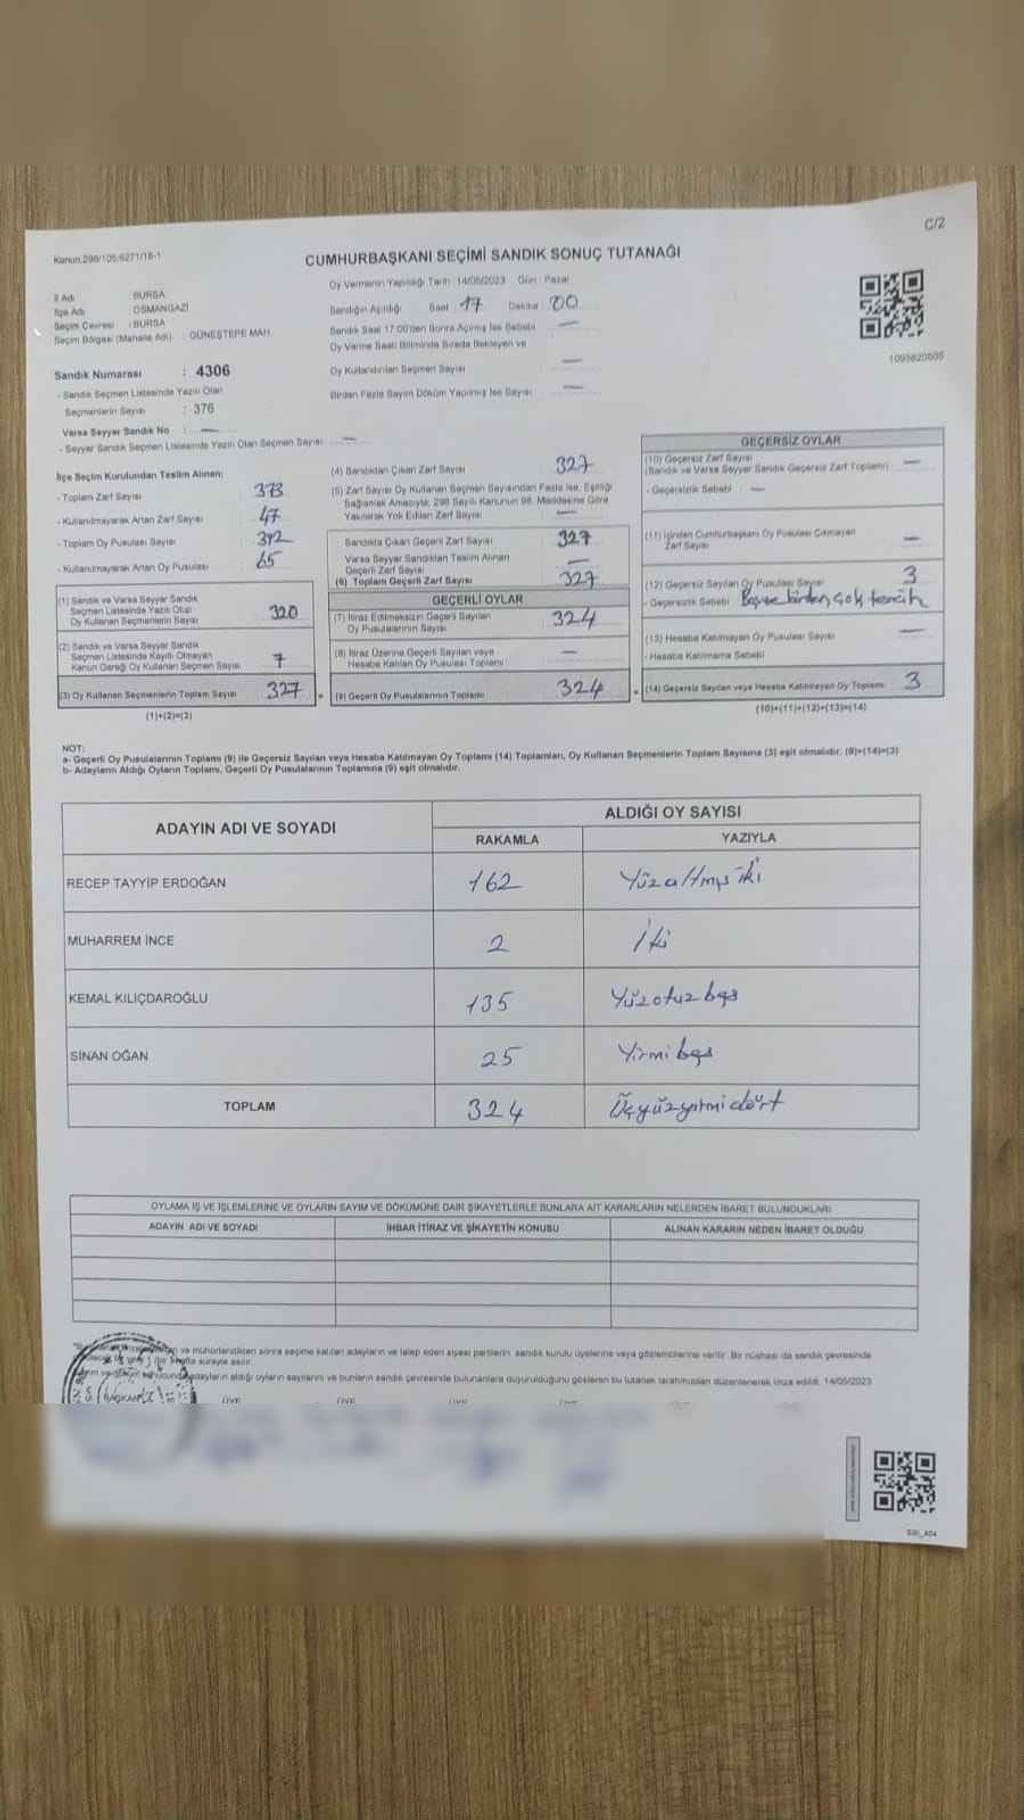 C/2
Kanun.298/105;6271/18-1
CUMHURBAŞKANI SEÇİMİ SANDIK SONUÇ TUTANAĞI
İl Adı : BURSA
İlçe Adı : OSMANGAZİ
Seçim Çevresi : BURSA
Seçim Bölgesi (Mahalle Adı) : GÜNEŞTEPE MAH.
Oy Vermenin Yapıldığı Tarih : 14/05/2023 Gün : Pazar
Sandığın Açıldığı Saat 17 Dakika : 00
Sandık Saat 17:00'den Sonra Açılmış İse Sebebi —
Oy Verme Saati Bitiminde Sırada Bekleyen ve
Oy Kullandırılan Seçmen Sayısı —
Birden Fazla Sayım Döküm Yapılmış İse Sayısı —
1093620005
Sandık Numarası : 4306
- Sandık Seçmen Listesinde Yazılı Olan
Seçmenlerin Sayısı : 376
Varsa Seyyar Sandık No : —
- Seyyar Sandık Seçmen Listesinde Yazılı Olan Seçmen Sayısı : —
İlçe Seçim Kurulundan Teslim Alınan;
- Toplam Zarf Sayısı 373
- Kullanılmayarak Artan Zarf Sayısı 47
- Toplam Oy Pusulası Sayısı 392
- Kullanılmayarak Artan Oy Pusulası 65
(1) Sandık ve Varsa Seyyar Sandık
Seçmen Listesinde Yazılı Olup
Oy Kullanan Seçmenlerin Sayısı 320
(2) Sandık ve Varsa Seyyar Sandık
Seçmen Listesinde Kayıtlı Olmayan
Kanun Gereği Oy Kullanan Seçmen Sayısı 7
(3) Oy Kullanan Seçmenlerin Toplam Sayısı 327
(1)+(2)=(3)
(4) Sandıktan Çıkan Zarf Sayısı 327
(5) Zarf Sayısı Oy Kullanan Seçmen Sayısından Fazla İse, Eşitliği
Sağlamak Amacıyla, 298 Sayılı Kanunun 98. Maddesine Göre
Yakılarak Yok Edilen Zarf Sayısı —
Sandıkta Çıkan Geçerli Zarf Sayısı 327
Varsa Seyyar Sandıktan Teslim Alınan
Geçerli Zarf Sayısı —
(6) Toplam Geçerli Zarf Sayısı 327
GEÇERLİ OYLAR
(7) İtiraz Edilmeksizin Geçerli Sayılan
Oy Pusulalarının Sayısı 324
(8) İtiraz Üzerine Geçerli Sayılan veya
Hesaba Katılan Oy Pusulası Toplamı —
(9) Geçerli Oy Pusulalarının Toplamı 324
GEÇERSİZ OYLAR
(10) Geçersiz Zarf Sayısı
(Sandık ve Varsa Seyyar Sandık Geçersiz Zarf Toplamı) —
- Geçersizlik Sebebi —
(11) İçinden Cumhurbaşkanı Oy Pusulası Çıkmayan
Zarf Sayısı —
(12) Geçersiz Sayılan Oy Pusulası Sayısı 3
- Geçersizlik Sebebi birden çok tercih
(13) Hesaba Katılmayan Oy Pusulası Sayısı —
- Hesaba Katılmama Sebebi
(14) Geçersiz Sayılan veya Hesaba Katılmayan Oy Toplamı 3
(10)+(11)+(12)+(13)=(14)
NOT:
a- Geçerli Oy Pusulalarının Toplamı (9) ile Geçersiz Sayılan veya Hesaba Katılmayan Oy Toplamı (14) Toplamları, Oy Kullanan Seçmenlerin Toplam Sayısına (3) eşit olmalıdır. (9)+(14)=(3)
b- Adayların Aldığı Oyların Toplamı, Geçerli Oy Pusulalarının Toplamına (9) eşit olmalıdır.
ADAYIN ADI VE SOYADI ALDIĞI OY SAYISI
RAKAMLA YAZIYLA
RECEP TAYYİP ERDOĞAN 162 Yüzaltmış iki
MUHARREM İNCE 2 İki
KEMAL KILIÇDAROĞLU 135 Yüzotuz beş
SİNAN OĞAN 25 Yirmi beş
TOPLAM 324 Üçyüzyirmidört
OYLAMA İŞ VE İŞLEMLERİNE VE OYLARIN SAYIM VE DÖKÜMÜNE DAİR ŞİKAYETLERLE BUNLARA AİT KARARLARIN NELERDEN İBARET BULUNDUKLARI
ADAYIN ADI VE SOYADI İHBAR İTİRAZ VE ŞİKAYETİN KONUSU ALINAN KARARIN NEDEN İBARET OLDUĞU
ve mühürlendikten sonra seçime katılan adayların ve talep eden siyasi partilerin sandık kurulu üyelerine veya gözlemcilerine verilir. Bir nüshası da sandık çevresinde
bir hafta süreyle asılır.
adayların aldığı oyların sayılarını ve bunların sandık çevresinde bulunanlara duyurulduğunu gösteren bu tutanak tarafımızdan düzenlenerek imza edildi. 14/05/2023